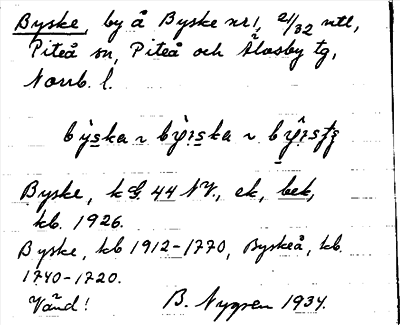 Byske, by å Byske nr 1, 21/32 mtl,
Piteå sn, Piteå och Älvsby tg,
Norrb. l.
Byske, k G. 44 NV., ek, bek,
kb. 1926.
Byske, kb 1912-1770, Byskeå, kb.
1740-1720.
Vänd! B. Nygren 1934.